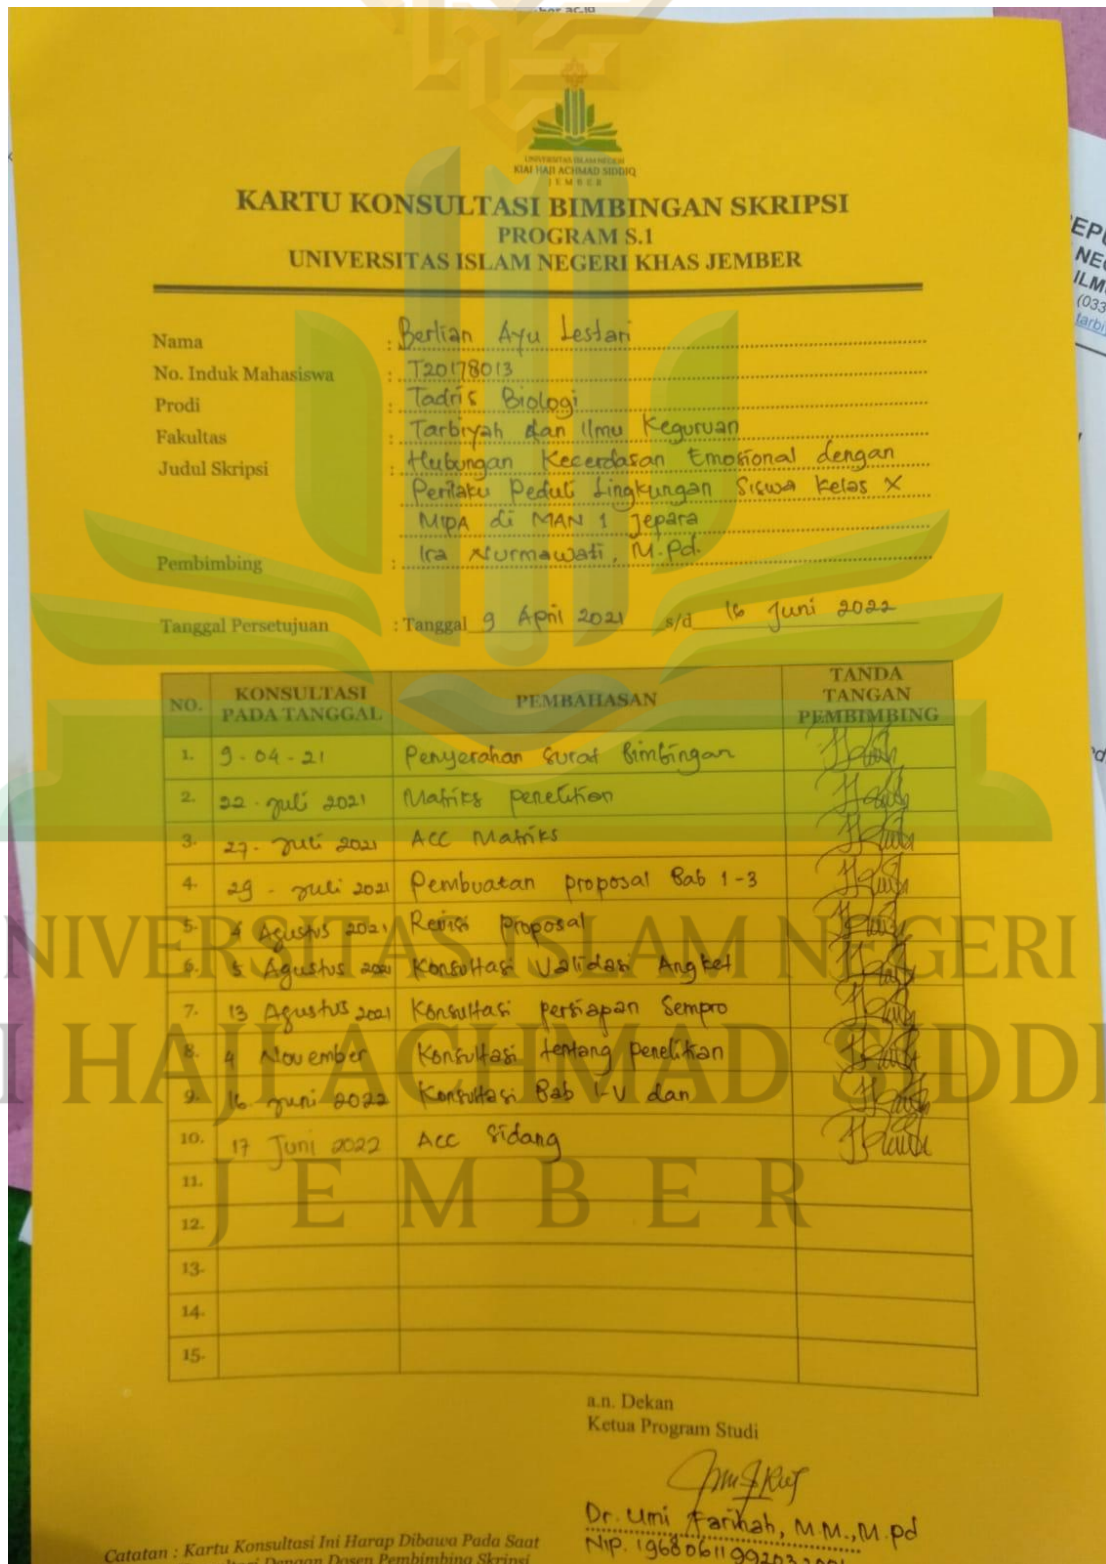 UNIVERSITAS ISLAM NEGERI
KIAI HAJI ACHMAD SIDDIQ
JEMBER
KARTU KONSULTASI BIMBINGAN SKRIPSI
PROGRAM S.1
UNIVERSITAS ISLAM NEGERI KHAS JEMBER
Nama : Berlian Ayu Lestari
No. Induk Mahasiswa : T20178013
Prodi : Tadris Biologi
Fakultas : Tarbiyah dan Ilmu Keguruan
Judul Skripsi : Hubungan Kecerdasan Emosional dengan
Perilaku Peduli Lingkungan Siswa Kelas X
MIPA di MAN 1 Jepara
Pembimbing : Ira Nurmawati, M.Pd.
Tanggal Persetujuan : Tanggal 9 April 2021 s/d 16 Juni 2022
NO. KONSULTASI PADA TANGGAL PEMBAHASAN TANDA TANGAN PEMBIMBING
1. 9-04-21 Penyerahan Surat Bimbingan
2. 22-Juli 2021 Matriks penelitian
3. 27-Juli 2021 ACC Matriks
4. 29-Juli 2021 Pembuatan proposal Bab 1-3
5. Agustus 2021 Revisi Proposal
6. 5 Agustus 2021 Konsultasi Validasi Angket
7. 13 Agustus 2021 Konsultasi persiapan Sempro
8. 4 November Konsultasi tentang penelitian
9. 16 Juni 2022 Konsultasi Bab I-V dan
10. 17 Juni 2022 Acc Sidang
11.
12.
13.
14.
15.
UNIVERSITAS ISLAM NEGERI
KIAI HAJI ACHMAD SIDDIQ
JEMBER
a.n. Dekan
Ketua Program Studi
Dr. Umi Farihah, M.M.,M.Pd
Catatan : Kartu Konsultasi Ini Harap Dibawa Pada Saat
Dengan Dosen Pembimbing Skripsi